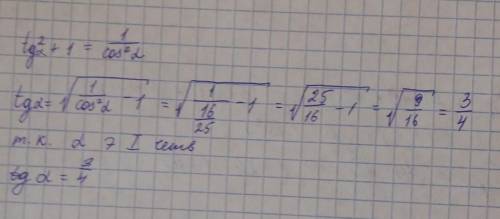 tg²α + 1 = 1/cos²α
tgα = √(1/cos²α - 1) = √(1/(16/25) - 1) = √(25/16 - 1) = √(9/16) = 3/4
т.к. α э I четв
tg α = 3/4